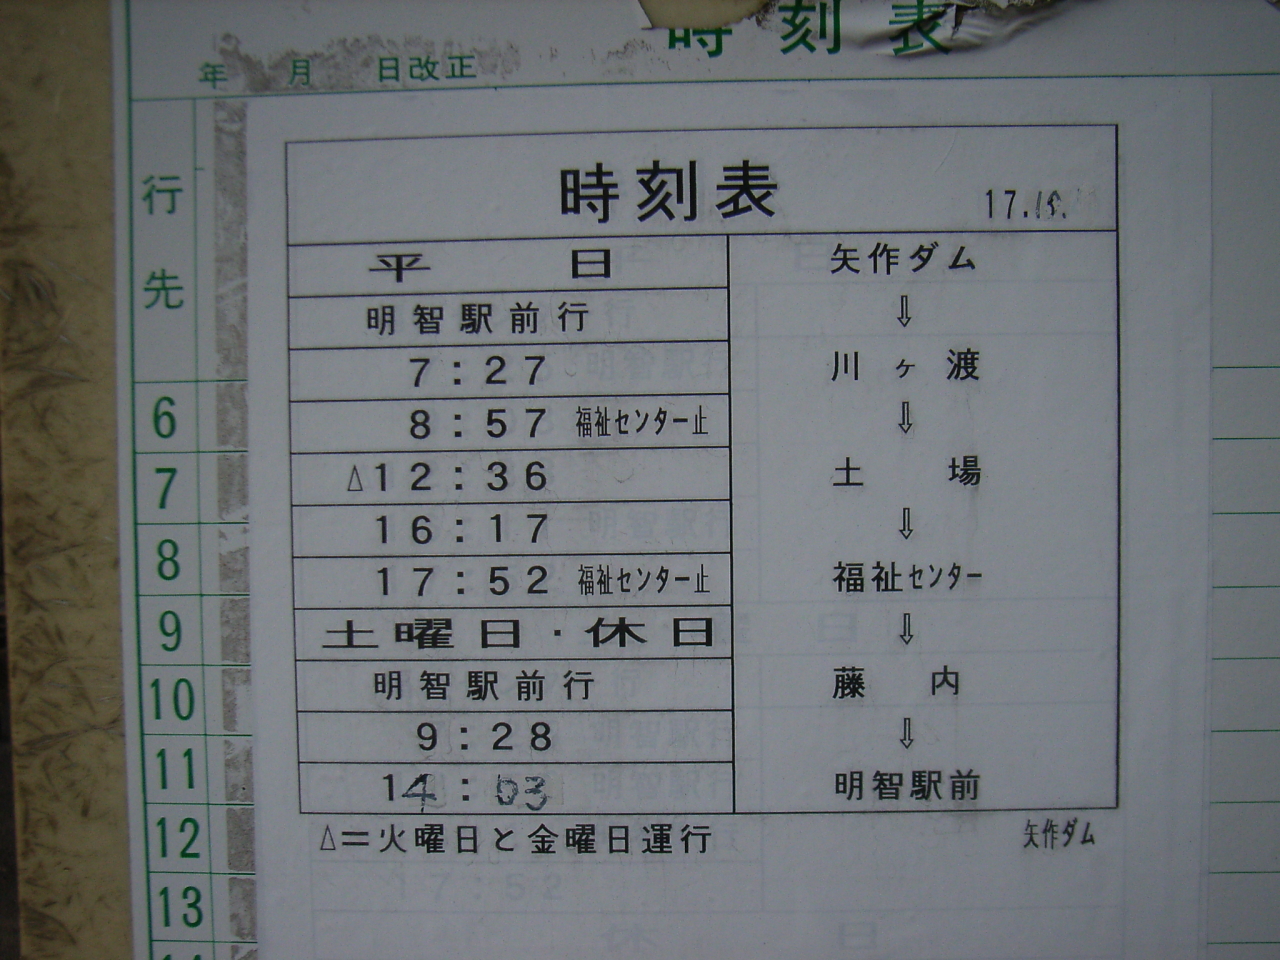 時刻表
年 月 日改正
行先
6
7
8
9
10
11
12
13
時刻表
17.
平 日
明智駅前行
7:27
8:57 福祉センター止
△12:36
16:17
17:52 福祉センター止
土曜日・休日
明智駅前行
9:28
14:03
△=火曜日と金曜日運行
矢作ダム
⇩
川ヶ渡
⇩
土場
⇩
福祉センター
⇩
藤内
⇩
明智駅前
矢作ダム